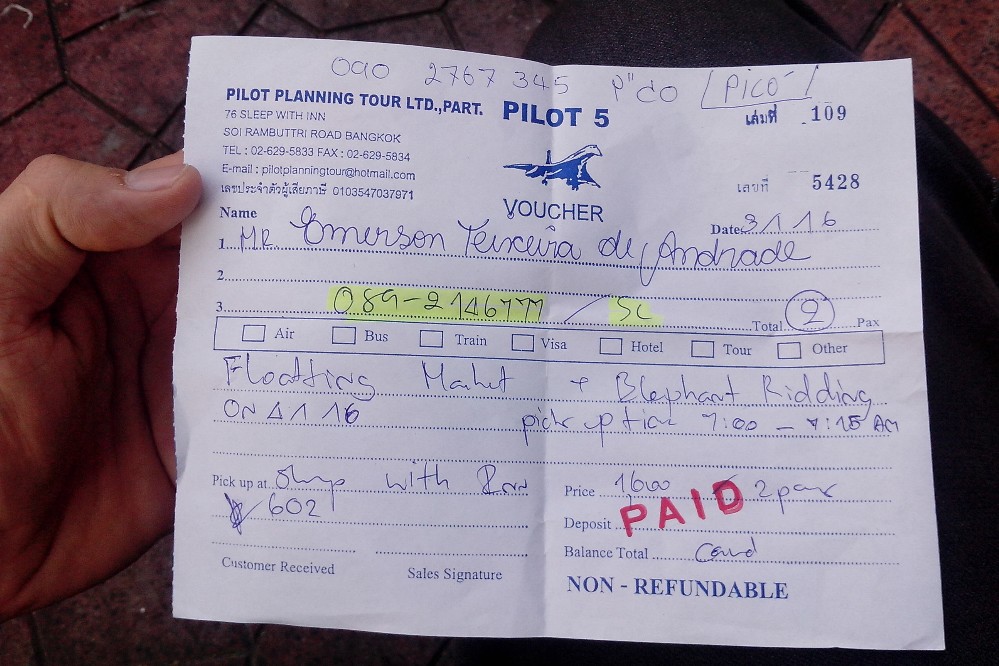 090 2767 345 P"CO PICO
PILOT PLANNING TOUR LTD.,PART. PILOT 5
76 SLEEP WITH INN
SOI RAMBUTTRI ROAD BANGKOK
TEL : 02-629-5833 FAX : 02-629-5834
E-mail : pilotplanningtour@hotmail.com
เลขประจำตัวผู้เสียภาษี 0103547037971
เล่มที่ 109
เลขที่ 5428
VOUCHER
Name
Date 3/1/16
1. MR. Emerson Teixeira de Andrade
2.
3. 089-2146777 / SC Total 2 Pax
Air Bus Train Visa Hotel Tour Other
Floatting Market + Elephant Ridding
ON 4 1 16 pick up tim 7:00 - 7:15 AM
Pick up at with Inn
602
Price 1600 2 pax
Deposit PAID
Balance Total
Customer Received Sales Signature
NON - REFUNDABLE